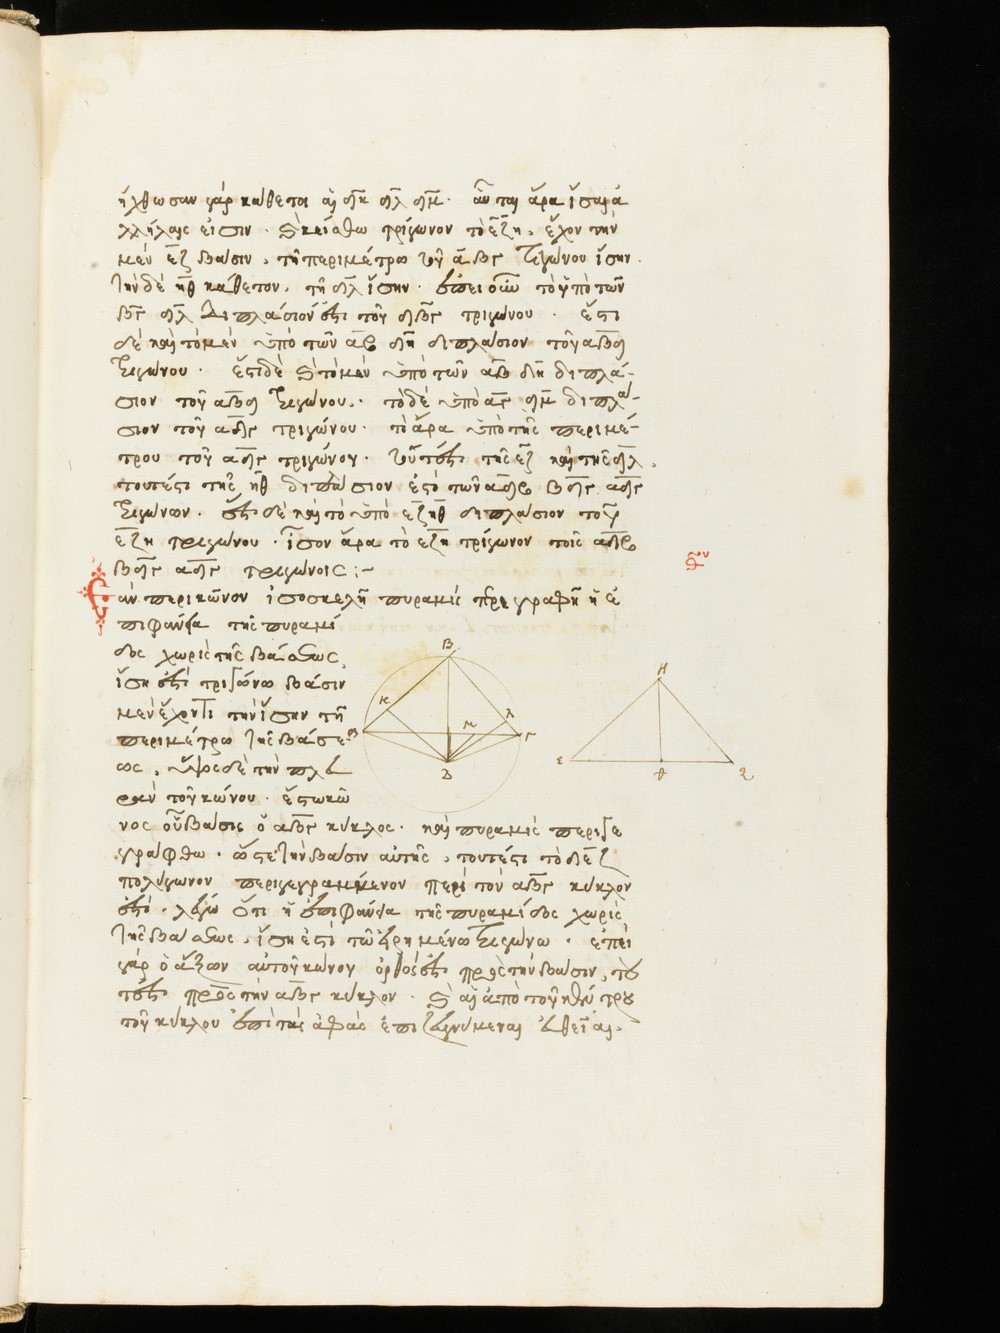 ἤχθωσαν γὰρ κάθετοι αἱ δκ δλ δμ· αὗται ἄρα ἴσαι ἀ
λλήλαις εἰσίν· καὶ κείσθω τρίγωνον τὸ εζη, ἔχον τὴν
μὲν εζ βάσιν, τῇ περιμέτρω τοῦ αβγ τριγώνου ἴσην.
τὴν δὲ ηθ κάθετον, τῇ δλ ἴσην· ἐπεὶ οὖν τὸ ὑπὸ τῶν
βγ δλ διπλάσιόν ἐστι τοῦ δβγ τριγώνου· ἔστι
δὲ καὶ τὸ μὲν ὑπὸ τῶν αβ δκ διπλάσιον τοῦ αβδ
τριγώνου· ἔτι δὲ καὶ τὸ μὲν ὑπὸ τῶν αβ δκ διπλά-
σιον τοῦ αβδ τριγώνου· τὸ δὲ ὑπὸ αγ δμ διπλά-
σιον τοῦ αδγ τριγώνου· τὸ ἄρα ὑπὸ τῆς περιμέ-
τρου τοῦ αβγ τριγώνου· τουτέστι τῆς εζ καὶ τῆς δλ,
τουτέστι τῆς ηθ διπλάσιον ἐστὸ τῶν αδβ βδγ αδγ
τριγώνων· ἔστι δὲ καὶ τὸ ὑπὸ εζ ηθ διπλάσιον τοῦ
εζη τριγώνου· ἴσον ἄρα τὸ εζη τρίγωνον τοῖς αδβ
βδγ αδγ τριγώνοις :~
Ἐὰν περὶ κῶνον ἰσοσκελῆ πυραμὶς περιγραφῇ ἡ ἐ
πιφάνεια τῆς πυραμί
δος χωρὶς τῆς βάσεως,
ἴση ἐστὶ τριγώνω βάσιν
μὲν ἔχοντι τὴν ἴσην τῇ
περιμέτρω τῆς βάσε-
ως, ὕψος δὲ τὴν πλευ
ρὰν τοῦ κώνου· ἔστω κῶ
Β
Κ Λ Μ
Α Γ
Δ
Η
Ε Θ Ζ
νος οὗ βάσις ὁ αβγ κύκλος· καὶ πυραμὶς περιγε
γράφθω· ὥστε τὴν βάσιν αὐτῆς, τουτέστι τὸ δεζ
πολύγωνον περιγεγραμμένον περὶ τὸν αβγ κύκλον
ἐστί· λέγω ὅτι ἡ ἐπιφάνεια τῆς πυραμίδος χωρὶς
τῆς βάσεως, ἴση ἐστὶ τῶ εἰρημένω τριγώνω· ἐπεὶ
γὰρ ὁ ἄξων αὐτοῦ κώνου ὀρθός ἐστι πρὸς τὴν βάσιν, του
τέστι πρὸς τὸν αβγ κύκλον· καὶ αἱ ἀπὸ τοῦ κέντρου
τοῦ κύκλου ἐπὶ τὰς ἀφὰς ἐπιζευγνύμεναι εὐθεῖαι,